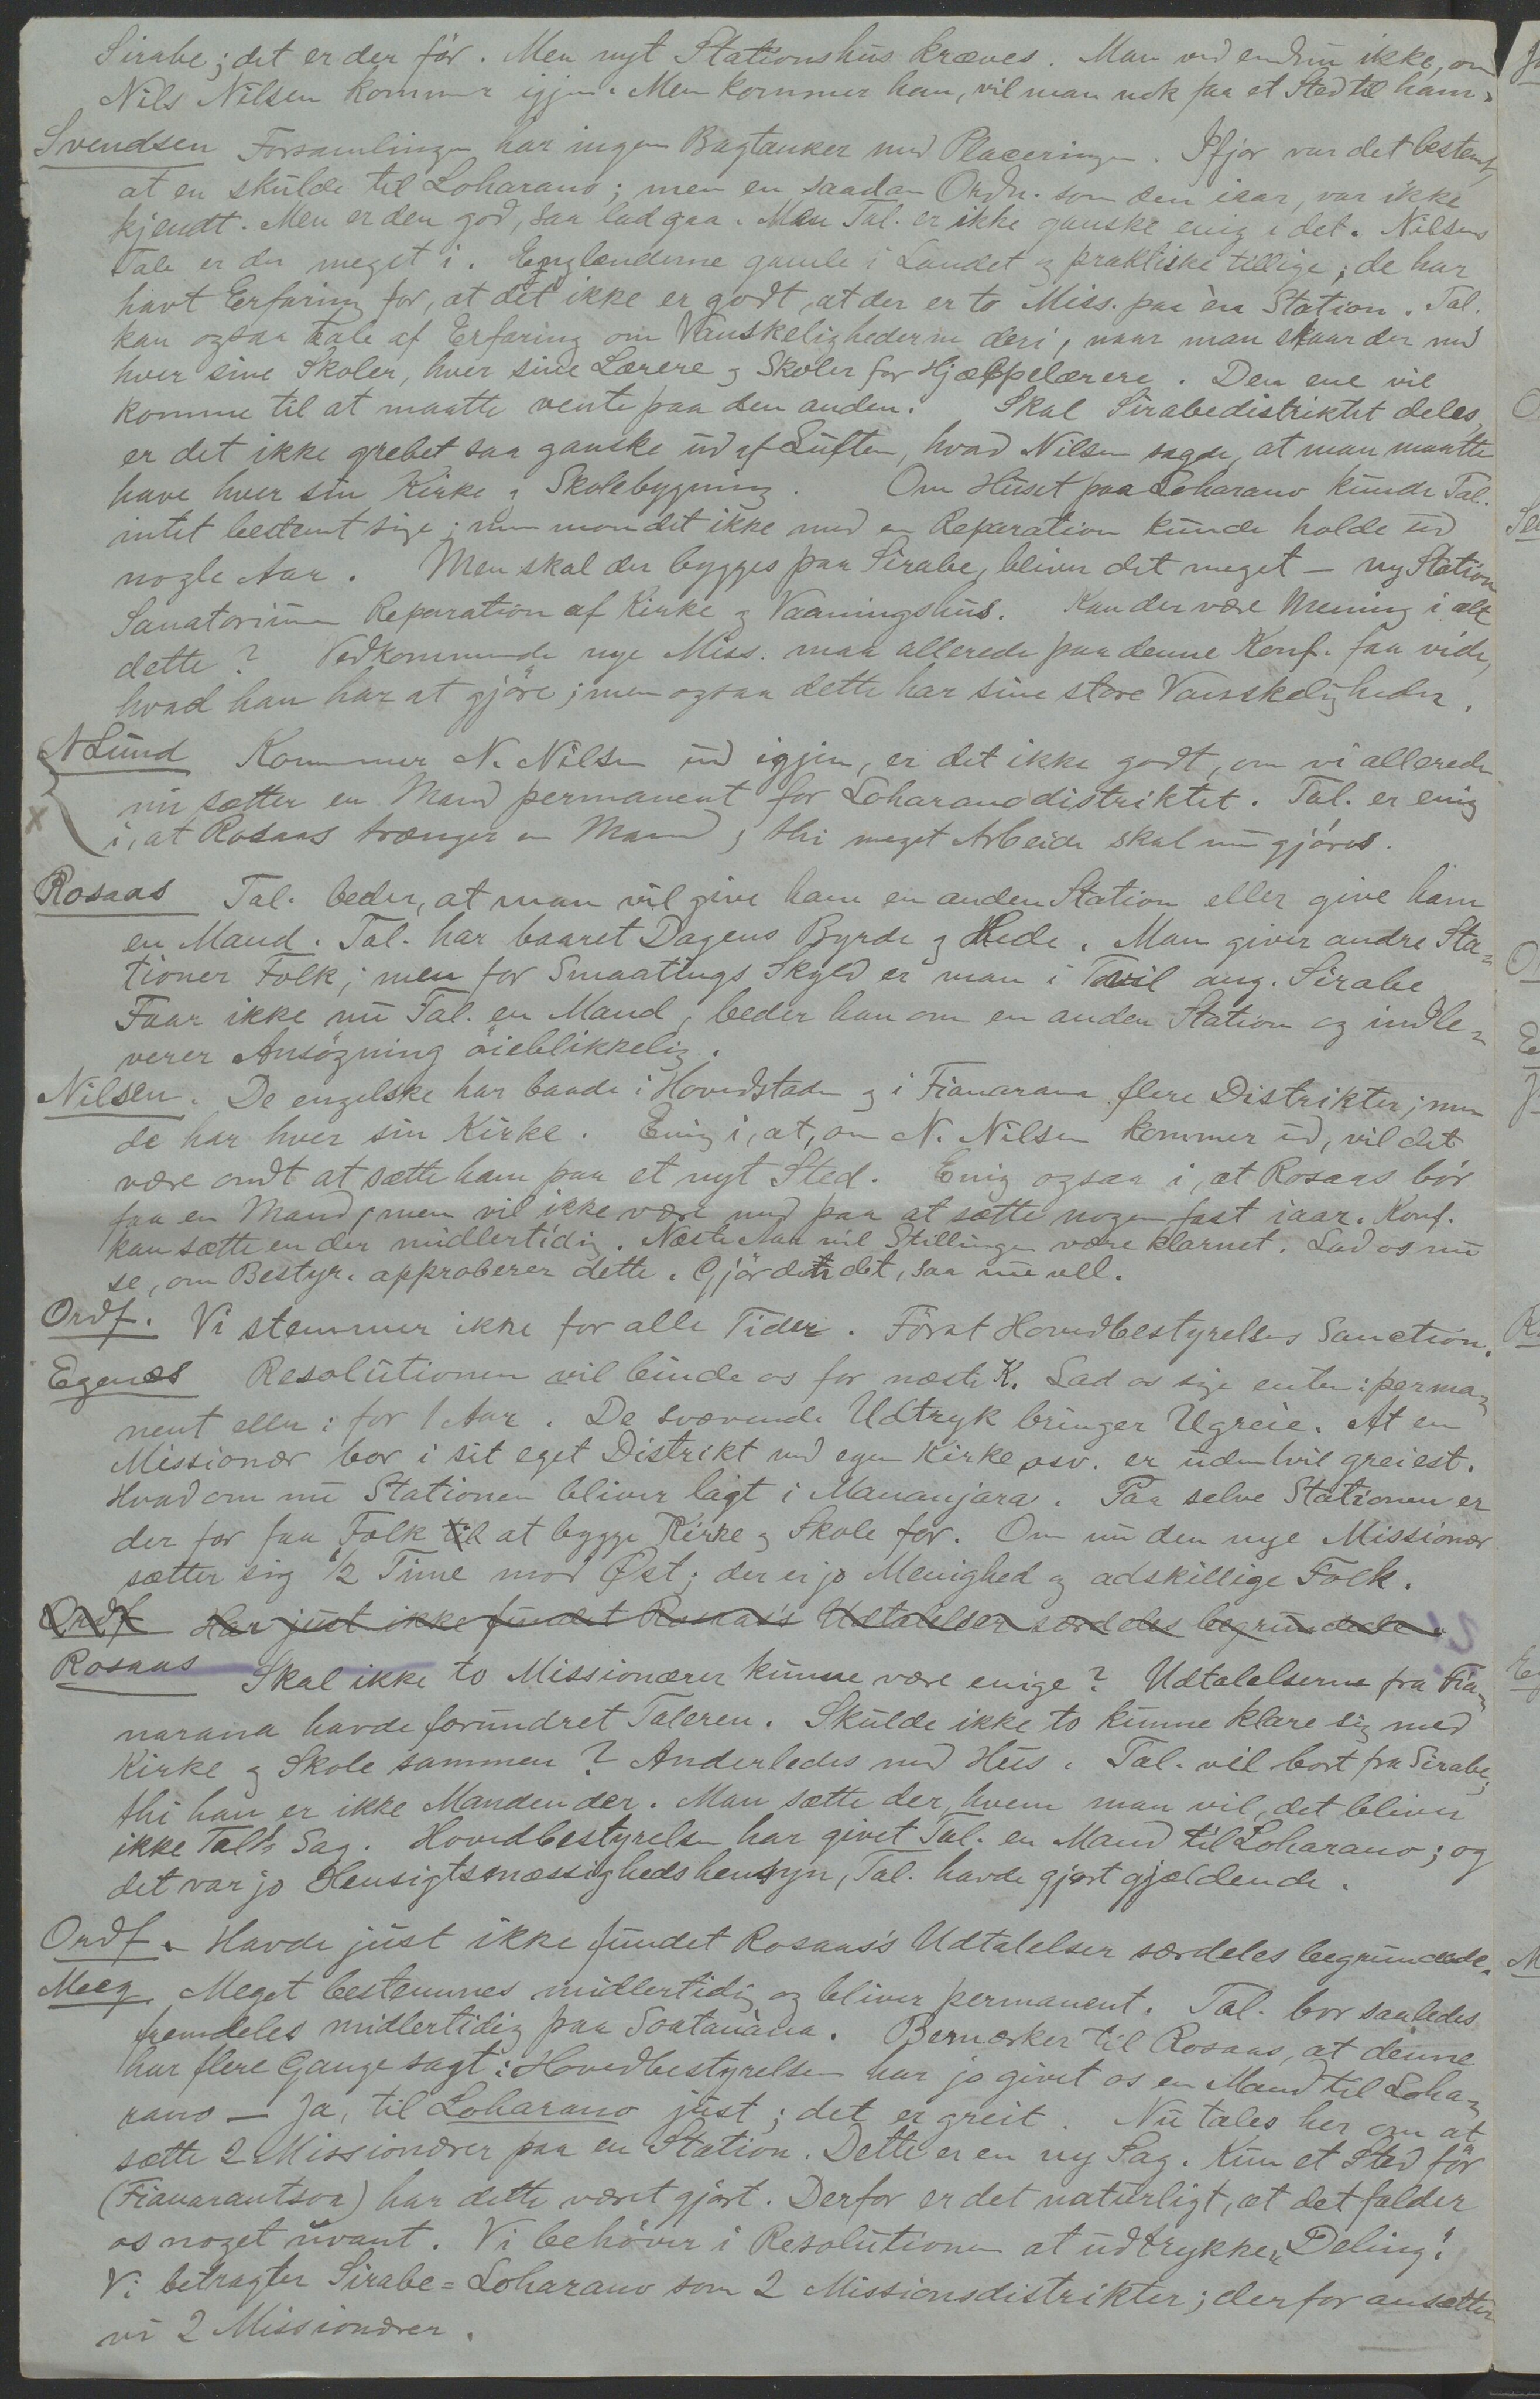 Sirabe; det er der för. Men nyt Stationshus kræves. Man ved endnu ikke, om
Nils Nilsen kommer igjen. Men kommer han, vil man nok faa et Sted til ham.
Svendsen Forsamlingen har ingen Bagtanker med Placeringen. Ifjor var det bestemt,
at en skulde til Loharano; men en saadan Ordn. som den iaar, var ikke
kjendt. Men er den god, saa lad gaa. Men Tal. er ikke ganske enig i det. Nilsens
Tale er der meget i. Englænderne gamle i Landet og praktiske tillige; de har
havt Erfaring for, at det ikke er godt, at der er to Miss. paa èn Station. Tal.
kan ogsaa tale af Erfaring om Vanskelighederne deri, naar man staar der med
hver sine Skoler, hver sine Lærere og Skoler for Hjælpelærere. Den ene vil
komme til at maatte vente paa den anden. Skal Sirabedistriktet deles,
er det ikke grebet saa ganske ud af Luften, hvad Nilsen sagde, at man maatte
have hver sin Kirke og Skolebygning. Om Huset paa Loharano kunde Tal.
intet bestemt sige; men mon det ikke med en Reparation kunde holde ud
nogle Aar. Men skal der bygges paa Sirabe, bliver det meget — ny Station
Sanatorium Reparation af Kirke og Vaaningshus. Kan der være Mening i alt
dette? Vedkommende nye Miss. maa allerede paa denne Konf. faa vide,
hvad han har at gjöre; men ogsaa dette har sine store Vanskeligheder.
N Lund Kommer N. Nilsen ud igjen, er det ikke godt, om vi allerede
nu sætter en Mand permanent for Loharanodistriktet. Tal. er enig
x i, at Rosaas trænger en Mand; thi meget Arbeide skal nu gjöres.
Rosaas Tal. beder, at man vil give ham en anden Station eller give ham
en Mand. Tal. har baaret Dagens Byrde og Hede. Man giver andre Sta-
tioner Folk; men for Smaatings Skyld er man i Tvil ang. Sirabe
Faar ikke nu Tal. en Mand, beder han om en anden Station og indle-
verer Ansögning öieblikkelig.
Nilsen. De engelske har baade i Hovedstaden og i Fianarana flere Distrikter; men
de har hver sin Kirke. Enig i, at, om N. Nilsen kommer ud, vil det
være ondt at sætte ham paa et nyt Sted. Enig ogsaa i, at Rosaas bör
faa en Mand, men vil ikke være med paa at sætte nogen fast iaar. Konf.
kan sætte en der midlertidig. Næste Aar vil Stillingen være klarnet. Lad os nu
se, om Bestyr. approberer dette. Gjör den det, saa nu vel.
Ordf. Vi stemmer ikke for alle Tider. Först Hovedbestyrelsens Sanction.
Egenæs Resolutionen vil binde os for næste K. Lad os sige enten: perma-
nent eller: for 1 Aar. De svævende Udtryk bringer Ugreie. At en
Missionær bor i sit eget Distrikt med egen Kirke osv. er uden tvil greiest.
Hvad om nu Stationen bliver lagt i Mananjara. Paa selve Stationen er
der for faa Folk til at bygge Kirke og Skole for. Om nu den nye Missionær
sætter sig 1/2 Time mod Øst; der er jo Menighed og adskillige Folk.
Ordf Har just ikke fundet Rosaas's Udtalelser særdeles begrundede.
Rosaas Skal ikke to Missionærer kunne være enige? Udtalelserne fra Fia-
narana havde forundret Taleren. Skulde ikke to kunne klare sig med
Kirke og Skole sammen? Anderledes med Hus. Tal. vil bort fra Sirabe,
thi han er ikke Manden der. Man sætte der, hvem man vil, det bliver
ikke Tal's Sag. Hovedbestyrelsen har givet Tal. en Mand til Loharano; og
det var jo Hensigtsmæssighedshensyn, Tal. havde gjort gjældende.
Ordf. Havde just ikke fundet Rosaas's Udtalelser særdeles begrundede.
Meeg. Meget bestemmes midlertidig og bliver permanent. Tal. bor saaledes
fremdeles midlertidig paa Soatanàna. Bemærker til Rosaas, at denne
har flere Gange sagt: Hovedbestyrelsen har jo givet os en Mand til Loha-
rano — Ja, til Loharano just; det er greit. Nu tales her om at
sætte 2 Missionærer paa en Station. Dette er en ny Sag. Kun et Sted för
(Fianarantsoa) har dette været gjort. Derfor er det naturligt, at det falder
os noget uvant. Vi behöver i Resolutionen at udtrykke „Deling“.
Vi betragter Sirabe=Loharano som 2 Missionsdistrikter; derfor ansætter
vi 2 Missionærer.